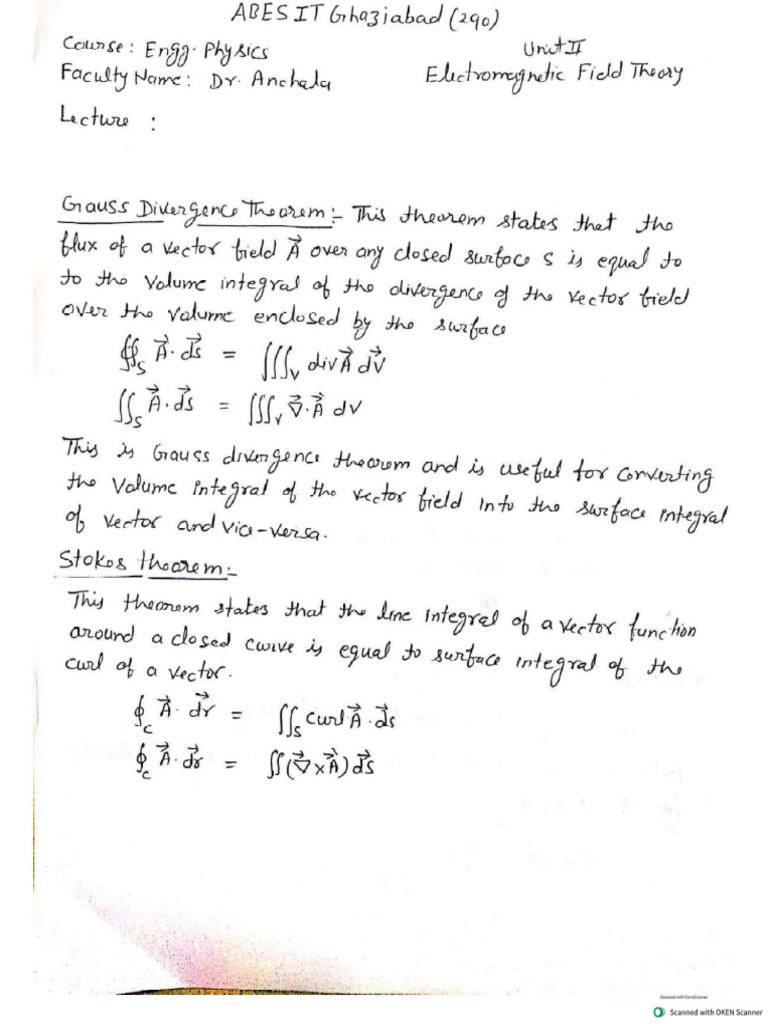 ABES IT Ghaziabad (290)
Course: Engg. Physics
Unit II
Faculty Name: Dr. Anchala
Electromagnetic Field Theory
Lecture :
Gauss Divergence Theorem:- This theorem states that the
flux of a vector field A⃗ over any closed surface S is equal to
to the volume integral of the divergence of the vector field
over the volume enclosed by the surface
∯_S A⃗·ds⃗ = ∭_V div A⃗ dV⃗
∬_S A⃗·ds⃗ = ∭_V ∇⃗·A⃗ dV
This is Gauss divergence theorem and is useful for converting
the volume integral of the vector field into the surface integral
of vector and vice-versa.
Stokes theorem:-
This theorem states that the line integral of a vector function
around a closed curve is equal to surface integral of the
curl of a vector.
∮_C A⃗·dr⃗ = ∬_S curl A⃗·ds⃗
∮_C A⃗·dr⃗ = ∬(∇⃗×A⃗)ds⃗
Scanned with CamScanner
Scanned with OKEN Scanner